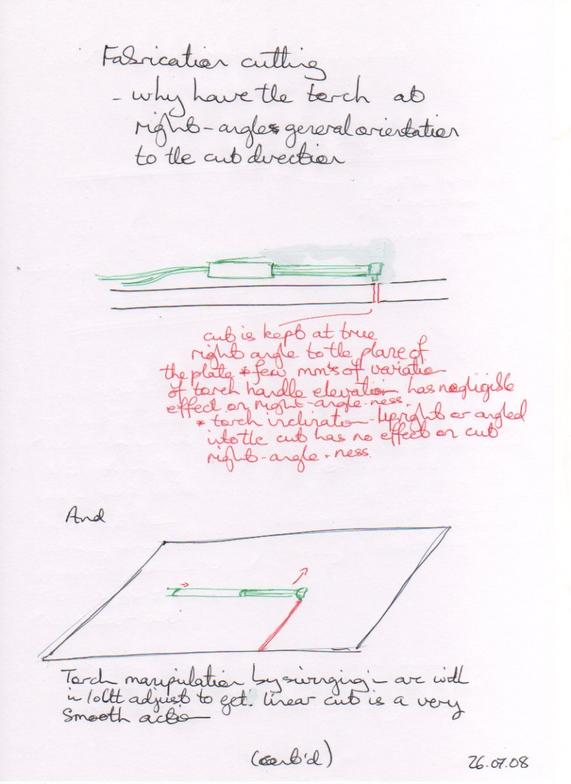 Fabrication cutting
- why have the torch at
right-angles general orientation
to the cut direction
cut is kept at true
right angle to the plane of
the plate * few mm's of variation
of torch handle elevation has negligible
effect on right-angle-ness.
* torch inclination - upright or angled
into the cut has no effect on cut
right-angle-ness.
And
Torch manipulation by swinging in arc with
in/out adjust to get linear cut is a very
smooth action
(cont'd)
26.07.08